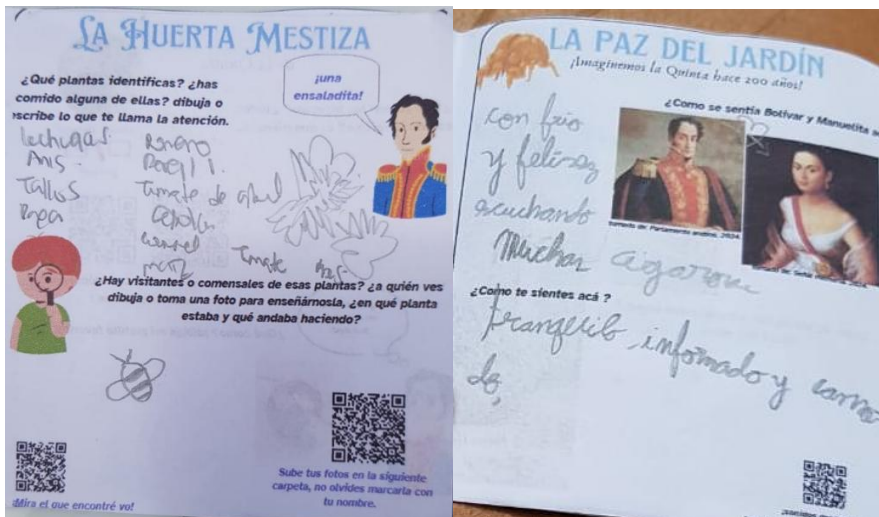 LA HUERTA MESTIZA
¿Qué plantas identificas? ¿has
comido alguna de ellas? dibuja o
escribe lo que te llama la atención.
¡una
ensaladita!
lechugas
Anis.
Tallos
Papa
Romero
Tomate de
maiz
Tomate
¿Hay visitantes o comensales de esas plantas? ¿a quién ves
dibuja o toma una foto para enseñárnosla, ¿en qué planta
estaba y qué andaba haciendo?
Sube tus fotos en la siguiente
carpeta, no olvides marcarla con
tu nombre.
¡Mira el que encontré yo!
LA PAZ DEL JARDÍN
¡Imaginemos la Quinta hace 200 años!
¿Como se sentía Bolívar y Manuelita
con frio
y felises
escuchando
Muchas
Tomado de: Parlamento andino, 2024.
¿Como te sientes acá ?
tranquilo, informado y